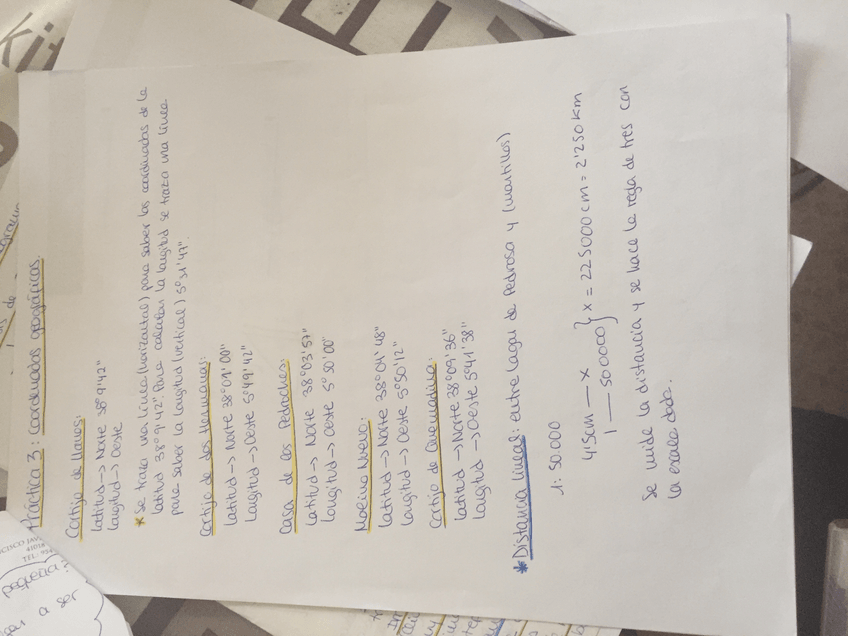 Práctica 3: Coordenadas geográficas.
Cortijo de Llanos:
latitud → Norte 38º9'42"
longitud → Oeste
* Se traza una línea (horizontal) para saber las coordenadas de la
latitud 38º9'42". Para calcular la longitud se traza una línea
para saber la longitud (vertical) 5º51'47".
Cortijo de dos Hermanas:
latitud → Norte 38º01'00"
longitud → Oeste 5º49'42"
Casa de los Pedroches:
latitud → Norte 38º03'57"
longitud → Oeste 5º50'00"
Molino Nuevo:
latitud → Norte 38º04'48"
longitud → Oeste 5º50'12"
Cortijo de Quemadillo:
latitud → Norte 38º09'36"
longitud → Oeste 5º41'38"
* Distancia lineal: entre Lagar de Pedrosa y (Martillos)
1:50.000
4'5cm — x
1 — 50.0000 } x = 225000 cm = 2'250 Km
Se mide la distancia y se hace la regla de tres con
la escala dada.
CISCO JAV
41018
TEL.: 954
pequeña?
a ser
de